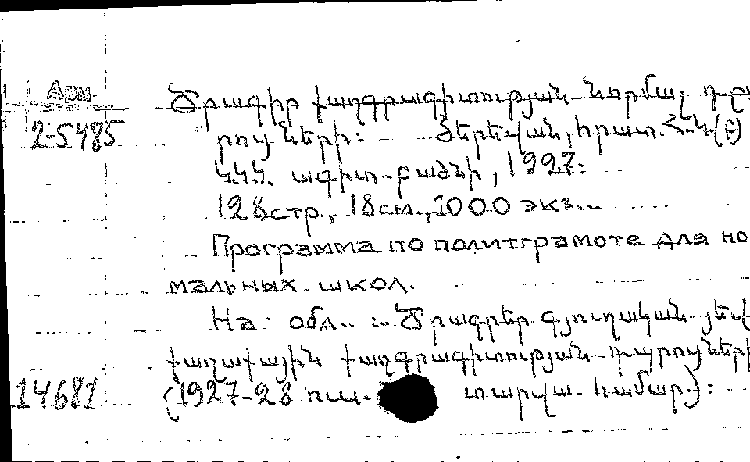 Арм. Ծրագիր քաղգրագիտության նորմալ դպ
2-5485 րոցների: Յերեվան, հրատ. Հ.Կ(բ)
Կ.Կ.Կ. ագիտ-բաժնի, 1927:
128 стр., 18 см., 1000 экз..
Программа по политграмоте для но
мальных школ.
На обл..: Ծրագրեր գյուղական յեվ
քաղաքային քաղգրագիտության դպրոցների
14681 (1927-28 ուս. տարվա համար):